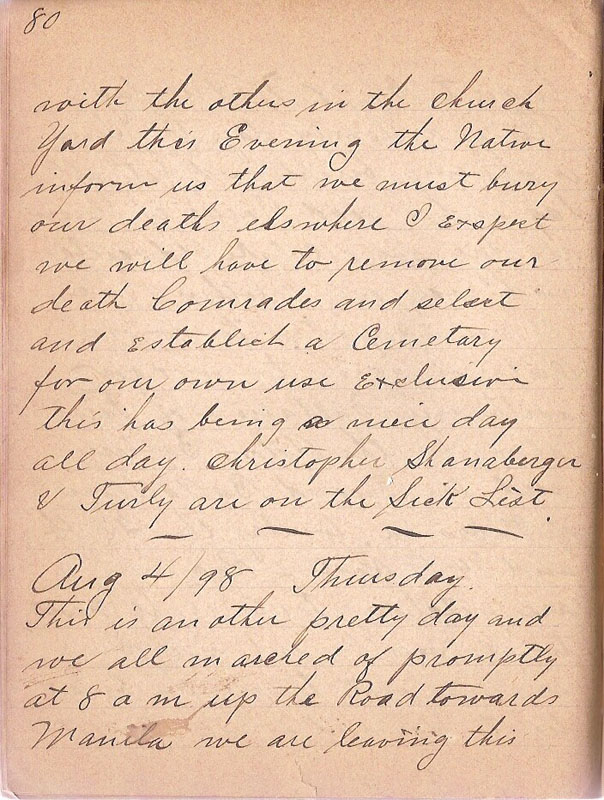 80
with the others in the church
Yard this Evening the Native
inform us that we must bury
our deaths elswhere I Expect
we will have to remove our
death Comrades and select
and Establish a Cemetary
for our own use Exclusive
this has being a nice day
all day. Christopher Shanaberger
& Turly are on the Sick List.
Aug 4/98 Thursday.
This is another pretty day and
we all marced of promptly
at 8 a m up the Road towards
Manila we are leaving this